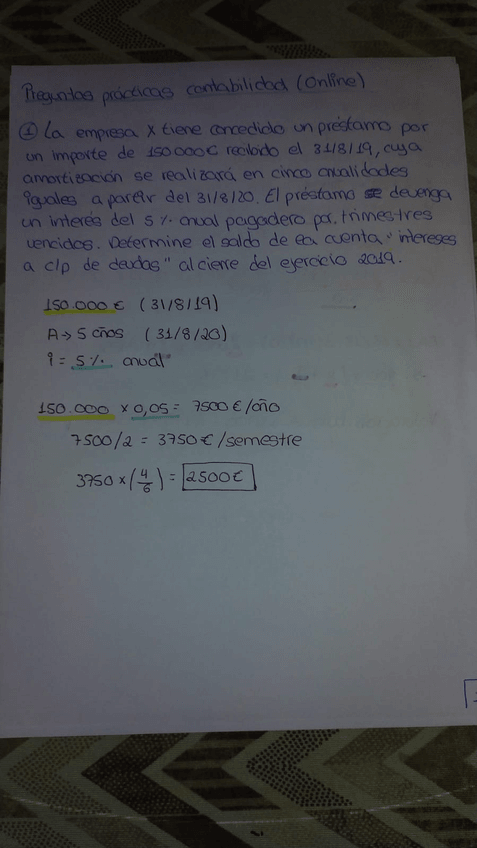 Preguntas prácticas contabilidad (Online)
① La empresa X tiene concedido un préstamo por
un importe de 150000€ recibido el 31/8/19, cuya
amortización se realizará en cinco anualidades
iguales a partir del 31/8/20. El préstamo se devenga
un interés del 5% anual pagadero por trimestres
vencidos. Determine el saldo de la cuenta "intereses
a c/p de deudas" al cierre del ejercicio 2019.
150.000 € (31/8/19)
A → 5 años (31/8/20)
i = 5% anual
150.000 x 0,05 = 7500 €/año
7500/2 = 3750 €/semestre
3750 x (4/6) = 2500€